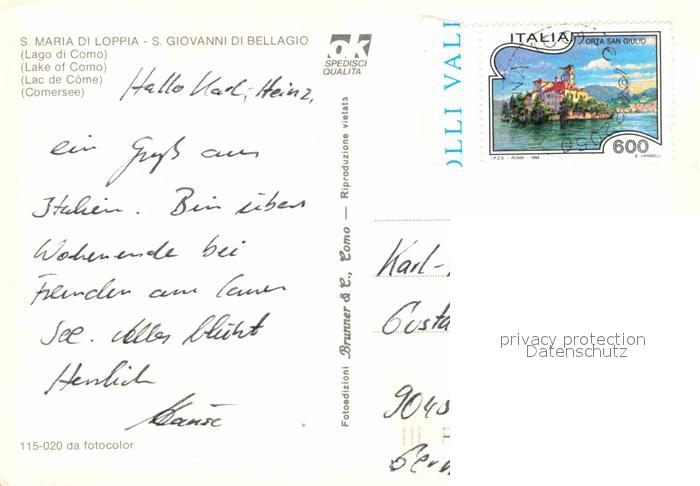 S. MARIA DI LOPPIA - S. GIOVANNI DI BELLAGIO
(Lago di Como)
(Lake of Como)
(Lac de Côme)
(Comersee)
ok
SPEDISCI
QUALITA
Hallo Karl-Heinz,
ein Gruß aus
Italien. Bin übers
Wochenende bei
Freunden am Comer
See. Alles blüht
Herrlich
115-020 da fotocolor
Fotoedizioni Brunner & C., Como — Riproduzione vietata
OLLI VALI
ITALIA
ORTA SAN GIULIO
600
I.P.Z.S. - ROMA - 1994
E. VANGELLI
Karl-
Gusta
privacy protection
Datenschutz